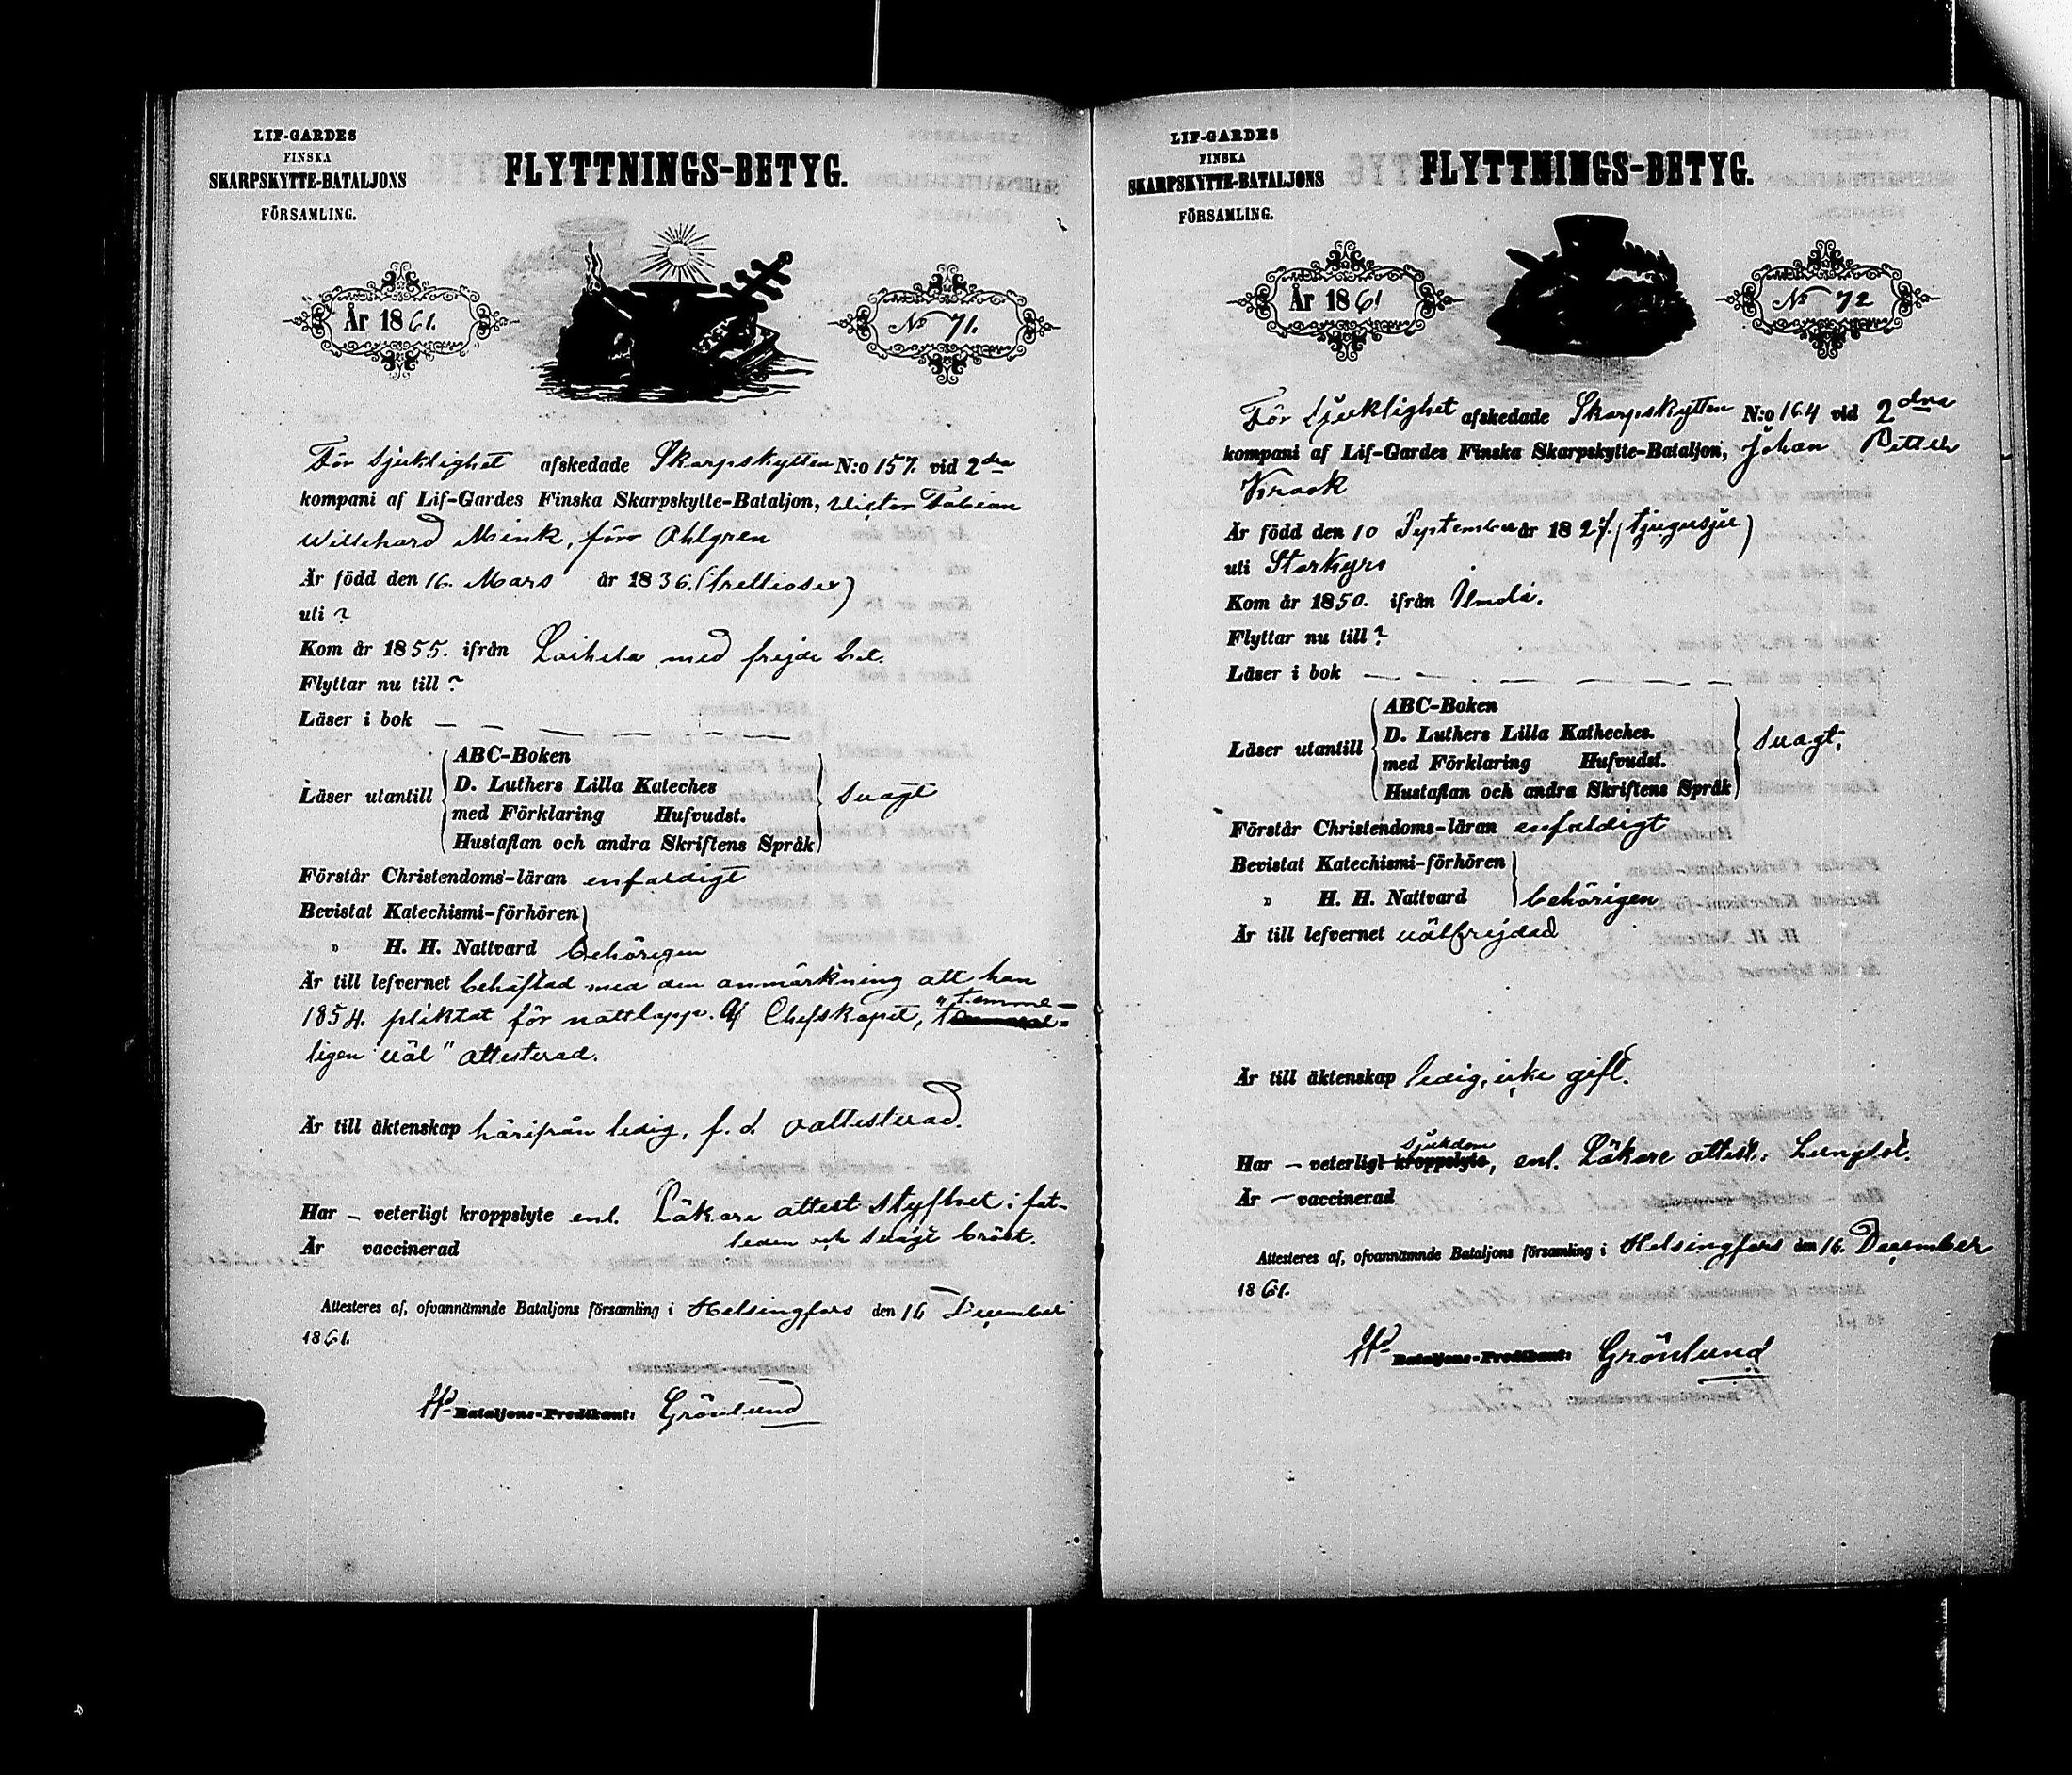 LIF-GARDES
FINSKA
SKARPSKYTTE-BATALJONS
FÖRSAMLING.
FLYTTNINGS-BETYG.
År 1861.
No 71.
För sjuklighet afskedade Skarpskytten N:o 157. vid 2dra
kompani af Lif-Gardes Finska Skarpskytte-Bataljon, Victor Fabian
Willehard Mink, förr Ahlgren
Är född den 16. Mars år 1836. (trettiosex)
uti ?
Kom år 1855. ifrån Laihela med frejde bet.
Flyttar nu till ?
Läser i bok — — — — — — —
Läser utantill
ABC-Boken
D. Luthers Lilla Kateches
med Förklaring Hufvudst.
Hustaflan och andra Skriftens Språk
svagt
Förstår Christendoms-läran enfaldigt
Bevistat Katechismi-förhören
" H. H. Nattvard behörigen
Är till lefvernet behäftad med den anmärkning att han
1854. pliktat för nattlopp. Af Chefskapet, "temme-
ligen väl" attesterad.
Är till äktenskap härifrån ledig, f. d. oattesterad.
Har – veterligt kroppslyte enl. Läkare attest styfhet i fot-
leden och svagt bröst.
Är vaccinerad
Attesteres af, ofvannämnde Bataljons församling i Helsingfors den 16 December
1861.
Bataljons-Predikant: Grönlund
LIF-GARDES
FINSKA
SKARPSKYTTE-BATALJONS
FÖRSAMLING.
FLYTTNINGS-BETYG.
År 1861
No 72
För sjuklighet afskedade Skarpskytten N:o 164 vid 2dra
kompani af Lif-Gardes Finska Skarpskytte-Bataljon, Johan Petter
Krook
Är född den 10 September år 1827. (tjugusju)
uti Storkyro
Kom år 1850. ifrån
Flyttar nu till ?
Läser i bok — — — — — — — —
Läser utantill
ABC-Boken
D. Luthers Lilla Katheches.
med Förklaring Hufvudst.
Hustaflan och andra Skriftens Språk
svagt.
Förstår Christendoms-läran enfaldigt
Bevistat Katechismi-förhören
" H. H. Nattvard behörigen
Är till lefvernet välfrejdad
Är till äktenskap ledig, icke gift.
sjukdom
Har – veterligt kroppslyte, enl. Läkare attest: Lungsot.
Är – vaccinerad
Attesteres af, ofvannämnde Bataljons församling i Helsingfors den 16. December
1861.
Bataljons-Predikant: Grönlund